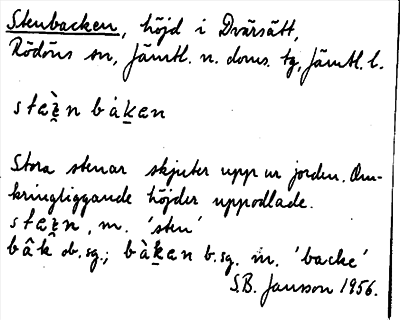 Stenbacken, höjd i Dvärsätt,
Rödöns sn, Jämtl. n. doms. tg, Jämtl. l.
staè̯n bàḵen
Stora stenar skjuter upp ur jorden. Om-
kringliggande höjder uppodlade.
staè̯n, m. 'sten'
bâk ob. sg.; bàḵen b. sg. m. 'backe'
S.B. Jansson 1956.